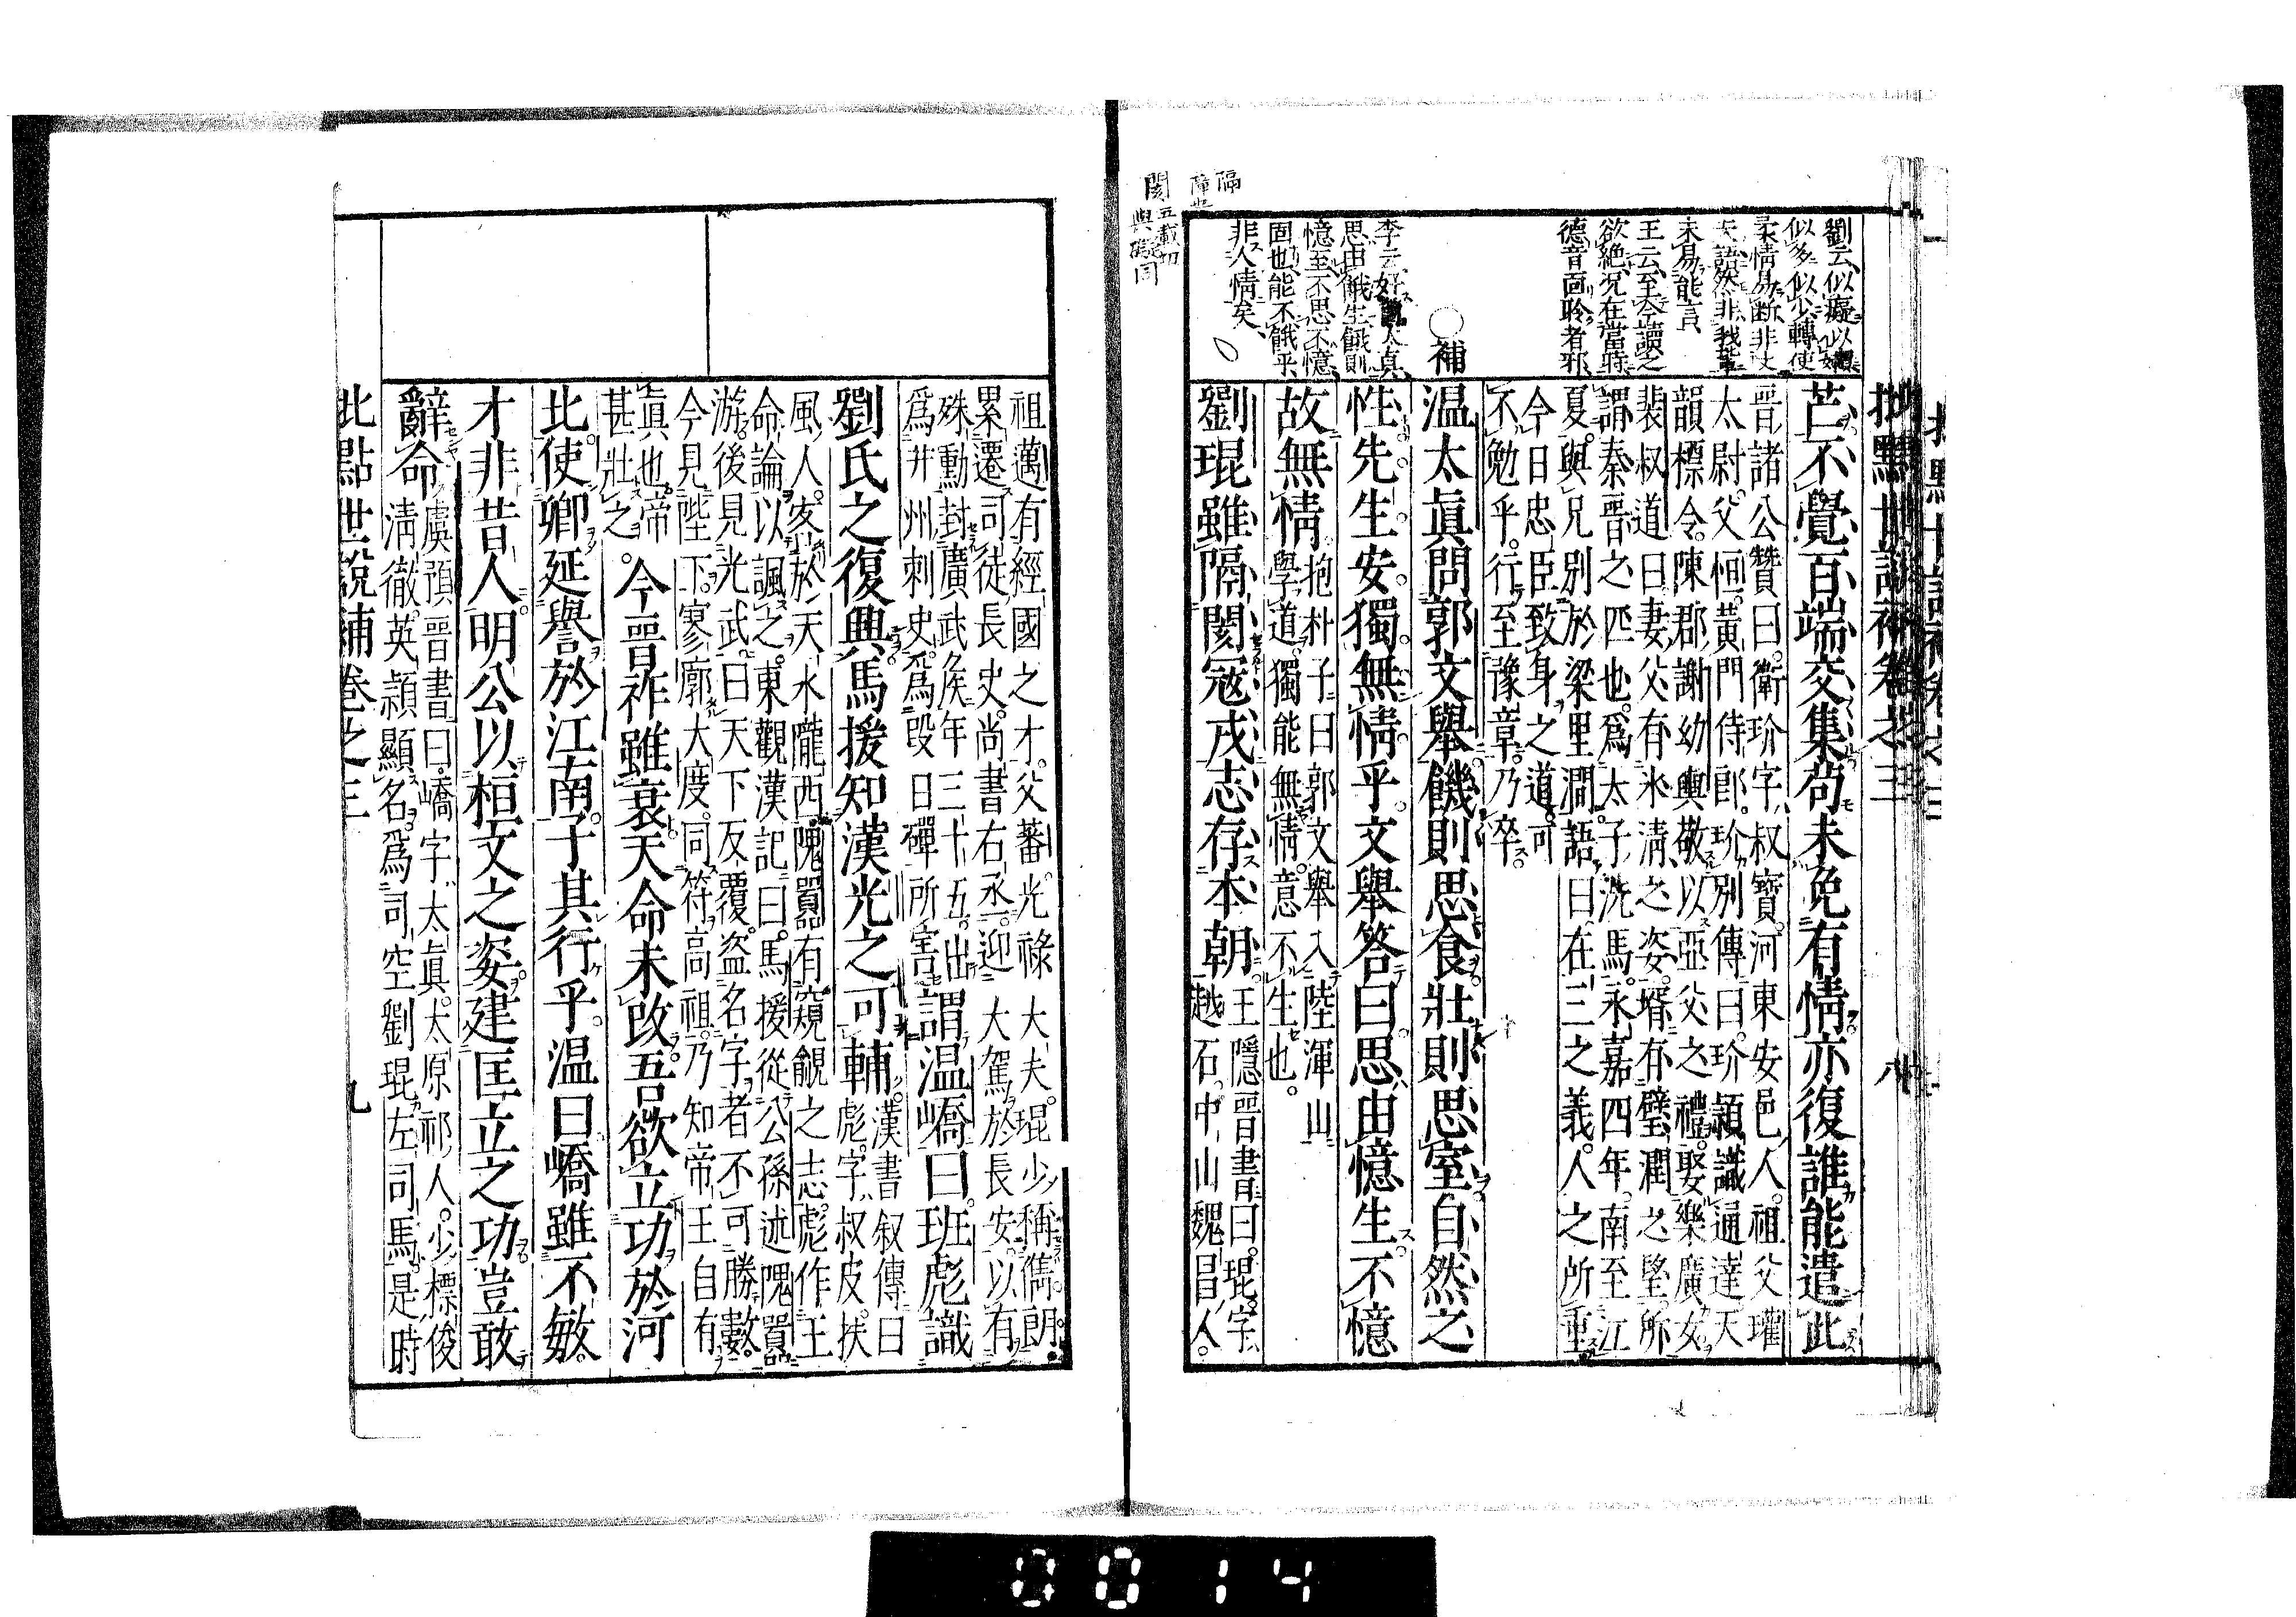 批點世說補卷之三 八
芒不覺百端交集苟未免有情亦復誰能遣此
晉諸公贊曰衛玠字叔寶河東安邑人祖父瓘
太尉父恒黃門侍郎玠別傳曰玠穎識通達天
韻標令陳郡謝幼輿敬以亞父之禮娶樂廣女
裴叔道曰妻父有氷淸之姿壻有璧潤之望所
謂秦晉之匹也爲太子洗馬永嘉四年南至江
夏與兄別於梁里澗語曰在三之義人之所重
今日忠臣致身之道可
不勉乎行至豫章乃卒
溫太眞問郭文舉饑則思食壯則思室自然之
性先生安獨無情乎文舉答曰思由憶生不憶
故無情
抱朴子曰郭文舉入陸渾山
學道獨能無情意不生也
劉琨雖隔閡寇戎志存本朝
王隱晉書曰琨字
越石中山魏昌人
劉云似癡似懶
似多似少轉使
柔情易斷非丈
夫語然非我輩
未易能言
王云至今讀之
欲絶況在當時
德音面聆者邪
補
李云好太眞
思由餓生餓則
憶至不思不憶
固也能不餓乎
非人情矣
隔
障也
閡
五載切
與礙同
祖邁有經國之才父蕃光祿大夫琨少稱儁朗
累遷司徒長史尚書右丞迎大駕於長安以有
殊勳封廣武矦年三十五出
爲幷州刺史爲段日磾所害
謂溫嶠曰班彪識
劉氏之復興馬援知漢光之可輔
漢書叙傳曰
彪字叔皮扶
風人客於天水隴西隗囂有窺覦之志彪作王
命論以諷之東觀漢記曰馬援從公孫述隗囂
游後見光武曰天下反覆盜名字者不可勝數
今見陛下寥廓大度同符高祖乃知帝王自有
眞也帝
甚壯之
今晉祚雖衰天命未改吾欲立功於河
北使卿延譽於江南子其行乎溫曰嶠雖不敏
才非昔人明公以桓文之姿建匡立之功豈敢
辭命
虞預晉書曰嶠字太眞太原祁人少標俊
淸徹英穎顯名爲司空劉琨左司馬是時
批點世說補卷之三 九
0014